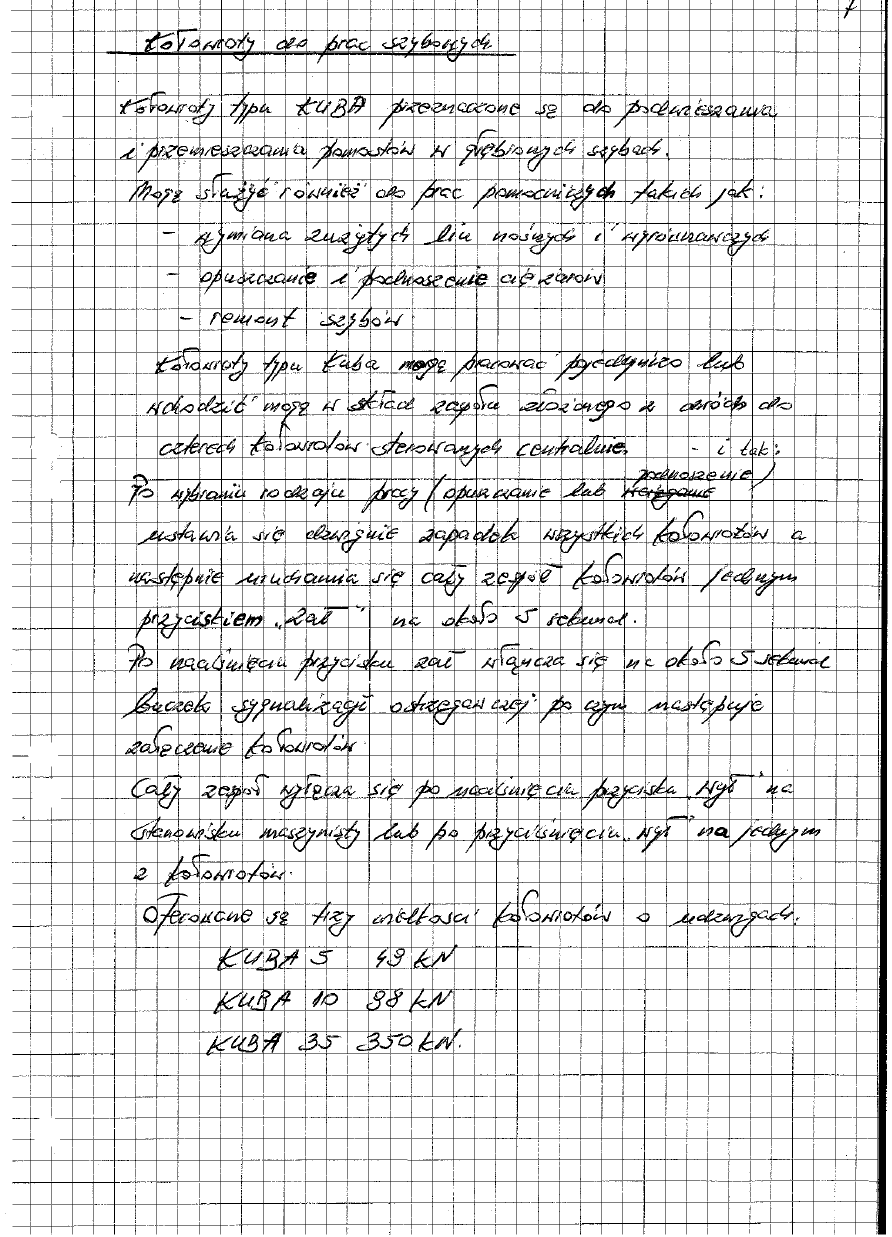 7
Kołowroty do prac szybowych
Kołowroty typu KUBA przeznaczone są do podwieszania
i przemieszczania pomostów w głębionych szybach.
Mogą służyć również do prac pomocniczych takich jak:
- wymiana zużytych lin nośnych i wyrównawczych
- opuszczanie i podnoszenie ciężarów
- remont szybów
Kołowroty typu Kuba mogą pracować pojedynczo lub
wchodzić mogą w skład zespołu złożonego z dwóch do
czterech kołowrotów sterowanych centralnie. - i tak:
podnoszenie)
Po wybraniu rodzaju pracy (opuszczanie lub
ustawia się dźwignie zapadek wszystkich kołowrotów a
następnie uruchamia się cały zespół kołowrotów jednym
przyciskiem „Zał" na około 5 sekund.
Po naciśnięciu przycisku zał włącza się na około 5 sekund
buczek sygnalizacji ostrzegawczej po czym następuje
załączenie kołowrotów.
Cały zespół wyłącza się po naciśnięciu przycisku „wył" na
stanowisku maszynisty lub po przyciśnięciu „wył" na jednym
z kołowrotów.
Oferowane są trzy wielkości kołowrotów o udźwigach.
KUBA 5 49 kN
KUBA 10 98 kN
KUBA 35 350 kN.